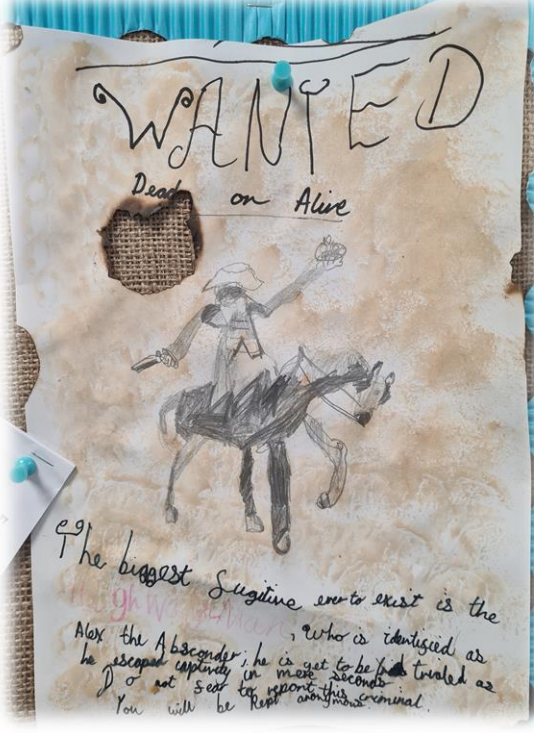 WANTED
Dead on Alive
eg
The biggest fugitive ever to exist is the
Highwayman, who is identified as
Alex the Absconder; he is yet to be trialed as
he escaped captivity in mere seconds
Do not fear to report this criminal.
You will be kept anonymous